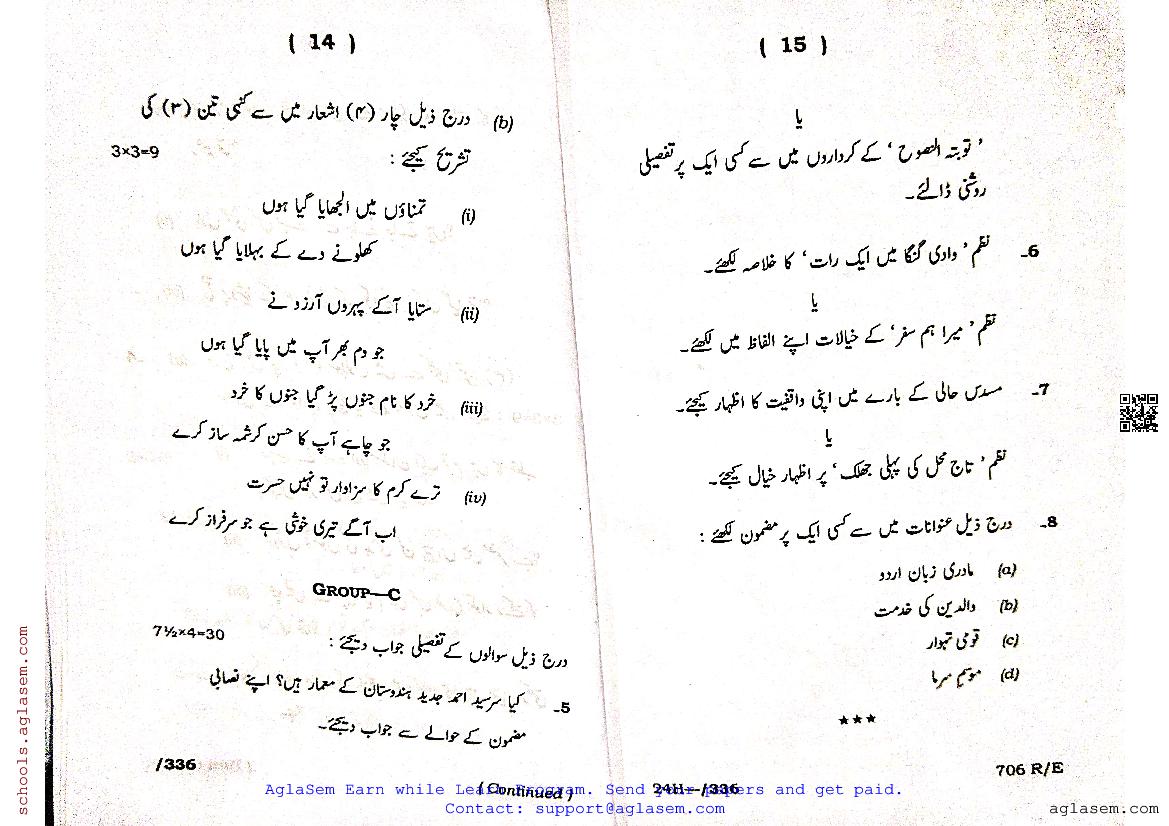 ( 14 )
(b) درج ذیل چار (۴) اشعار میں سے کنہی تین (۳) کی
تشریح کیجئے : 3×3=9
(i) تمناؤں میں الجھایا گیا ہوں
کھلونے دے کے بہلایا گیا ہوں
(ii) ستایا آکے پہروں آرزو نے
جو دم بھر آپ میں پایا گیا ہوں
(iii) خرد کا نام جنوں پڑ گیا جنوں کا خرد
جو چاہے آپ کا حسن کرشمہ ساز کرے
(iv) ترے کرم کا سزاوار تو نہیں حسرت
اب آگے تیری خوشی ہے جو سرفراز کرے
GROUP—C
درج ذیل سوالوں کے تفصیلی جواب دیجئے : 7½×4=30
5۔ کیا سرسید احمد جدید ہندوستان کے معمار ہیں؟ اپنے نصابی
مضمون کے حوالے سے جواب دیجئے۔
/336
( Continued )
( 15 )
یا
’ توبتہ النصوح ‘ کے کرداروں میں سے کسی ایک پر تفصیلی
روشنی ڈالئے۔
6۔ نظم ’ وادی گنگا میں ایک رات‘ کا خلاصہ لکھئے۔
یا
نظم ’ میرا ہم سفر‘ کے خیالات اپنے الفاظ میں لکھئے۔
7۔ مسدس حالی کے بارے میں اپنی واقفیت کا اظہار کیجئے۔
یا
نظم ’ تاج محل کی پہلی جھلک‘ پر اظہار خیال کیجئے۔
8۔ درج ذیل عنوانات میں سے کسی ایک پر مضمون لکھئے :
(a) مادری زبان اردو
(b) والدین کی خدمت
(c) قومی تہوار
(d) موسم سرما
★★★
24H—/336
706 R/E
AglaSem Earn while Learn Program. Send your papers and get paid.
Contact: support@aglasem.com
aglasem.com
schools.aglasem.com